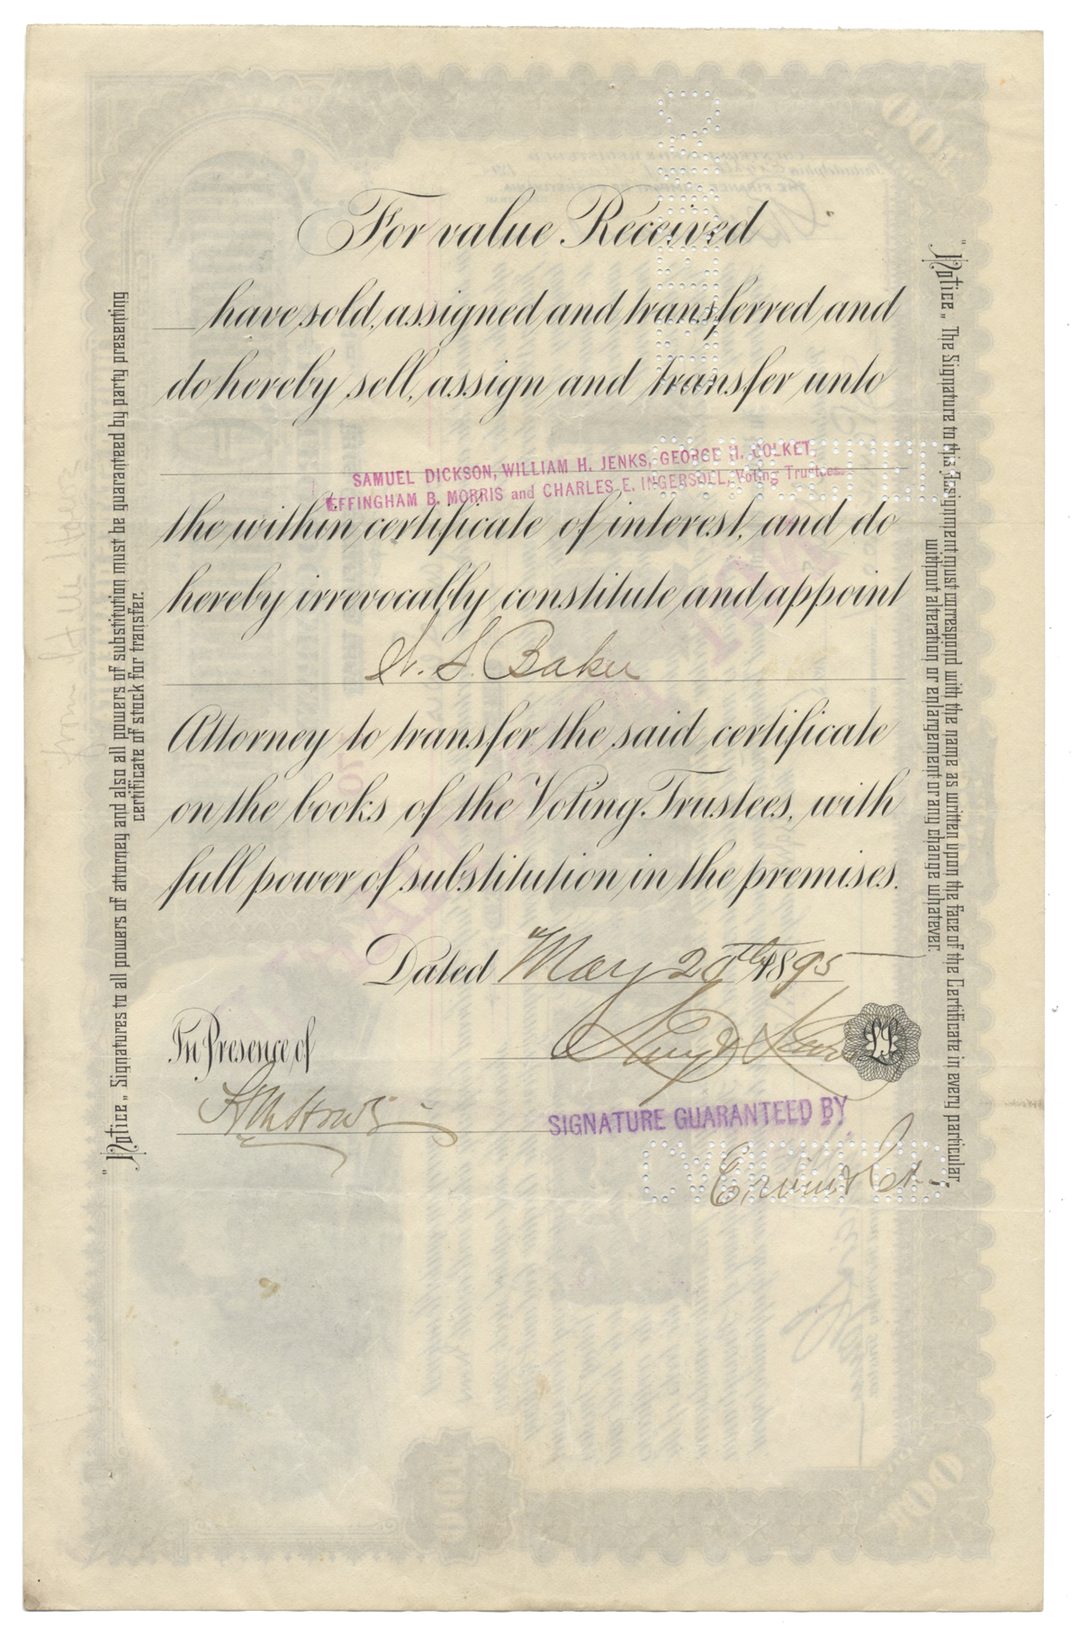 For value Received
have sold, assigned and transferred and
do hereby sell, assign and transfer unto
SAMUEL DICKSON, WILLIAM H. JENKS, GEORGE H. COLKET,
EFFINGHAM B. MORRIS and CHARLES E. INGERSOLL, Voting Trustees
the within certificate of interest, and do
hereby irrevocably constitute and appoint
W. S. Baker
Attorney to transfer the said certificate
on the books of the Voting Trustees, with
full power of substitution in the premises.
Dated May 20th 1895
In Presence of
L.S.
SIGNATURE GUARANTEED BY
"Notice" Signatures to all powers of attorney and also all powers of substitution must be guaranteed by party presenting
certificate of stock for transfer.
"Notice" The Signature to this Assignment must correspond with the name as written upon the face of the Certificate in every particular,
without alteration or enlargement or any change whatever.